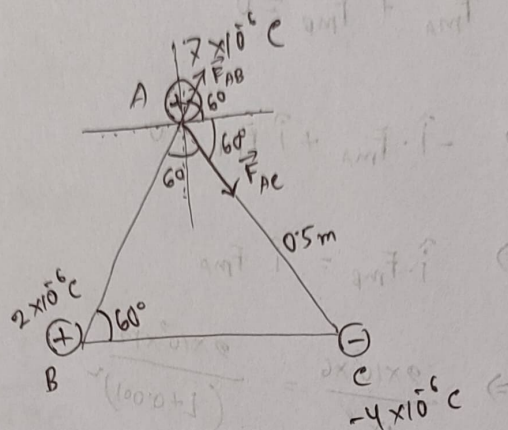 7 × 10⁻⁶ C
F⃗AB
A
+
60
60°
60
F⃗AC
0.5m
2 × 10⁻⁶ C
60°
+
−
B
C
−4 × 10⁻⁶ C